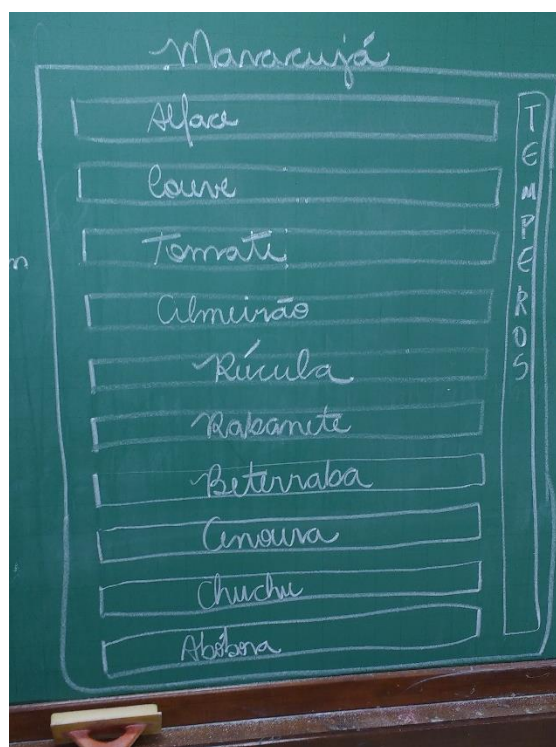 Maracujá
Alface
Couve
Tomate
Almeirão
Rúcula
Rabanete
Beterraba
Cenoura
Chuchu
Abóbora
TEMPEROS